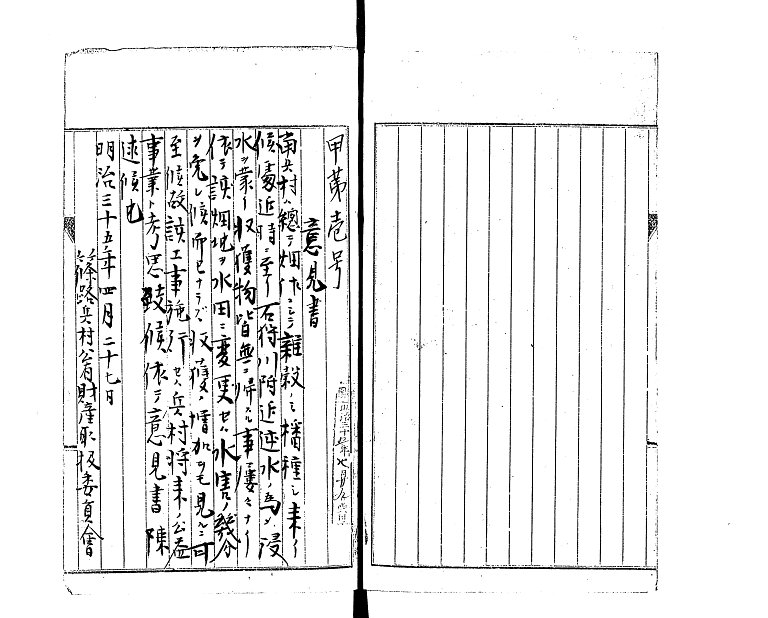 甲第壱号
意見書
南兵村ハ總テ畑作ニシテ雜穀ノミ播種シ来リ
候處近時ニ至リ石狩川附近逆水ノ為メ浸
水ヲ蒙リ収獲物皆無ニ帰スル事屡々ナリ
依テ該畑地ヲ水田ニ変更セハ水害ノ幾分
ヲ免レ候而已ナラズ収獲ノ増加ヲモ見ルニ可
至候故該工事施行セハ兵村将来ノ公益
事業ト考思致候依テ意見書陳
述候也
明治三十五年四月二十七日
兵村公有財産取扱委員會